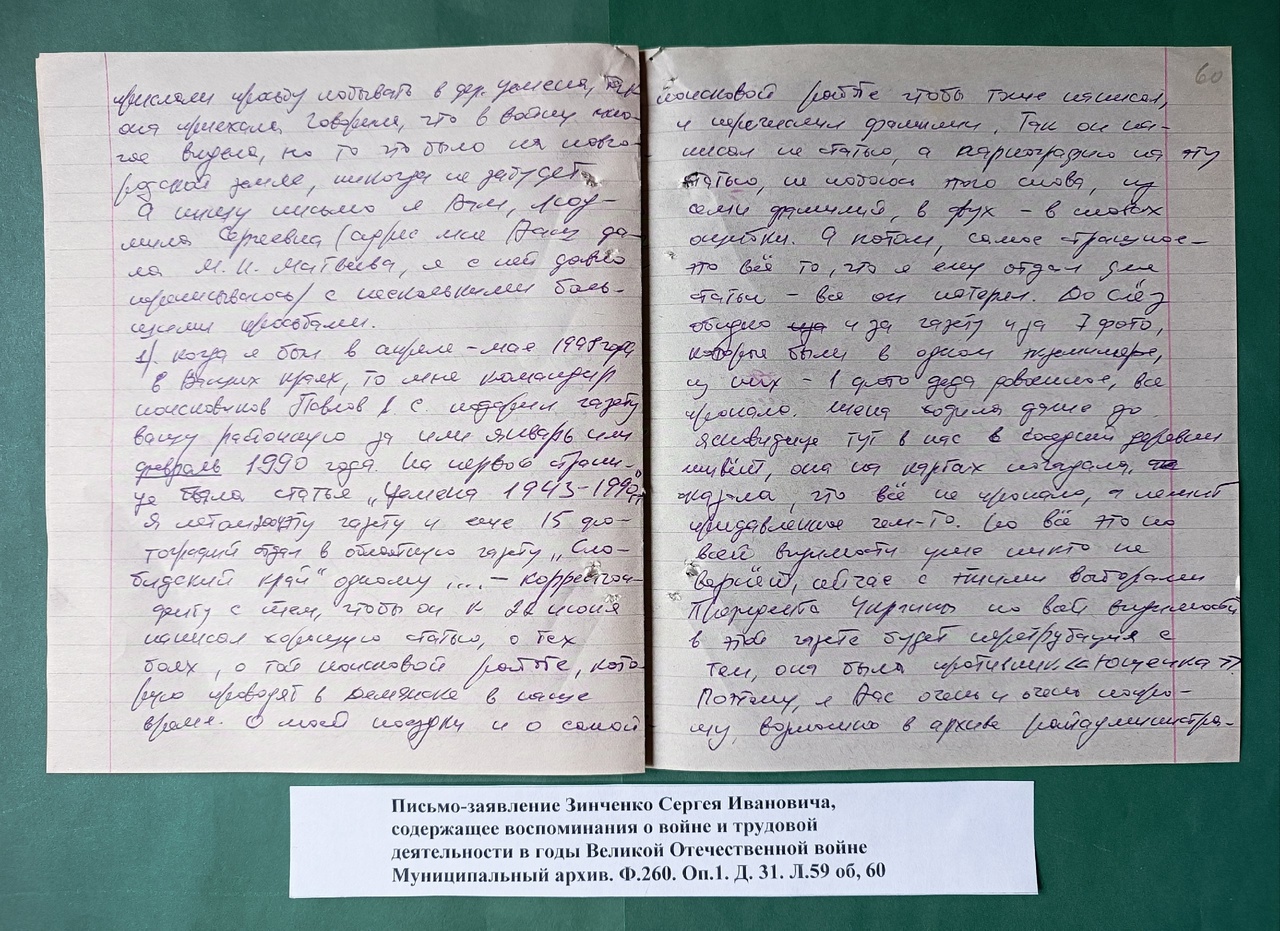 прислали просьбу побывать в дер. Цемена, так
она приехала, говорила, что в войну мно-
гое видела, но то что было на новго-
родской земле, никогда не забудет.
А пишу письмо я Вам, Люд-
мила Сергеевна (адрес мне Ваш да-
ла М. И. Матвеева, я с ней давно
переписываюсь) с несколькими боль-
шими просьбами.
1/. когда я был в апреле – мае 1998 года
в Ваших краях, то мне командир
поисковиков Павлов С. подарил газету
вашу районную за или январь или
февраль 1990 года. На первой страни-
це была статья „Цемена 1943-1990"
Я летом эту газету и еще 15 фо-
тографий отдал в областную газету „Сло-
бидский край" одному .... – корреспон-
денту с тем, чтобы он к 22 июня
написал хорошую статью, о тех
боях, о той поисковой работе, кото-
рую проводят в Демянске в наше
время. О моей поездки и о самой
60
поисковой работе чтобы тоже написал,
и перечислил фамилии. Так он на-
писал не статью, а парнографию на эту
статью, не побоюсь этого слова, из
семи фамилий, в двух – в словах
ошибки. А потом, самое страшное –
это всё то, что я ему отдал для
статьи – все он потерял. До слёз
обидно и за газету и за 7 фото,
которые были в одном экземпляре,
из них – 1 фото деда довоенное, все
пропало. Жена ходила даже до
ясновидице тут в нас в соседний деревни
живёт, она на картах погадала,
казала, что всё не пропало, а лежит
придавленное чем-то. Но всё это по
всей видимости уже никто не
вернёт, сейчас с этими выборами
Президента Украины по всей видимости
в этой газете будет перетрубация с
тем, она была противника Ющенка
Поэтому, я Вас очень и очень попро-
шу, возможно в архиве райадминистра-
Письмо-заявление Зинченко Сергея Ивановича,
содержащее воспоминания о войне и трудовой
деятельности в годы Великой Отечественной войне
Муниципальный архив. Ф.260. Оп.1. Д. 31. Л.59 об, 60